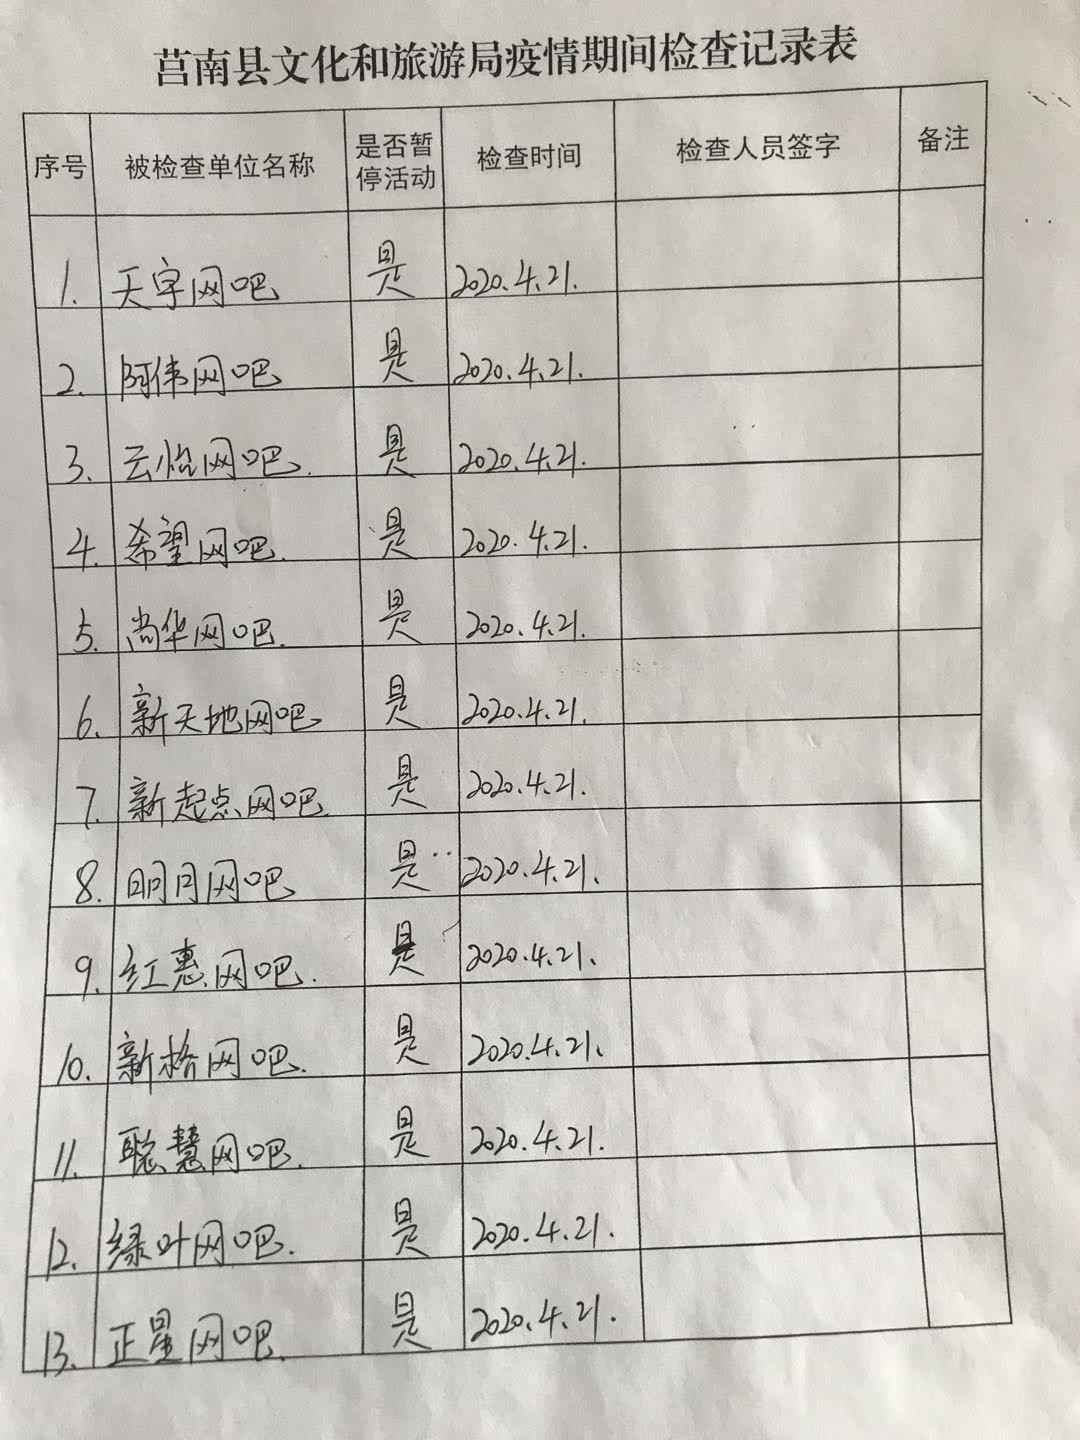 莒南县文化和旅游局疫情期间检查记录表
序号 被检查单位名称 是否暂停活动 检查时间 检查人员签字 备注
1. 天宇网吧 是 2020.4.21.
2. 阿伟网吧 是 2020.4.21.
3. 云怡网吧. 是 2020.4.21.
4. 希望网吧. 是 2020.4.21.
5. 尚华网吧. 是 2020.4.21.
6. 新天地网吧 是 2020.4.21.
7. 新起点网吧. 是 2020.4.21.
8. 明月网吧 是 2020.4.21.
9. 红惠网吧. 是 2020.4.21.
10. 新格网吧. 是 2020.4.21.
11. 聪慧网吧. 是 2020.4.21.
12. 绿叶网吧. 是 2020.4.21.
13. 正星网吧. 是 2020.4.21.